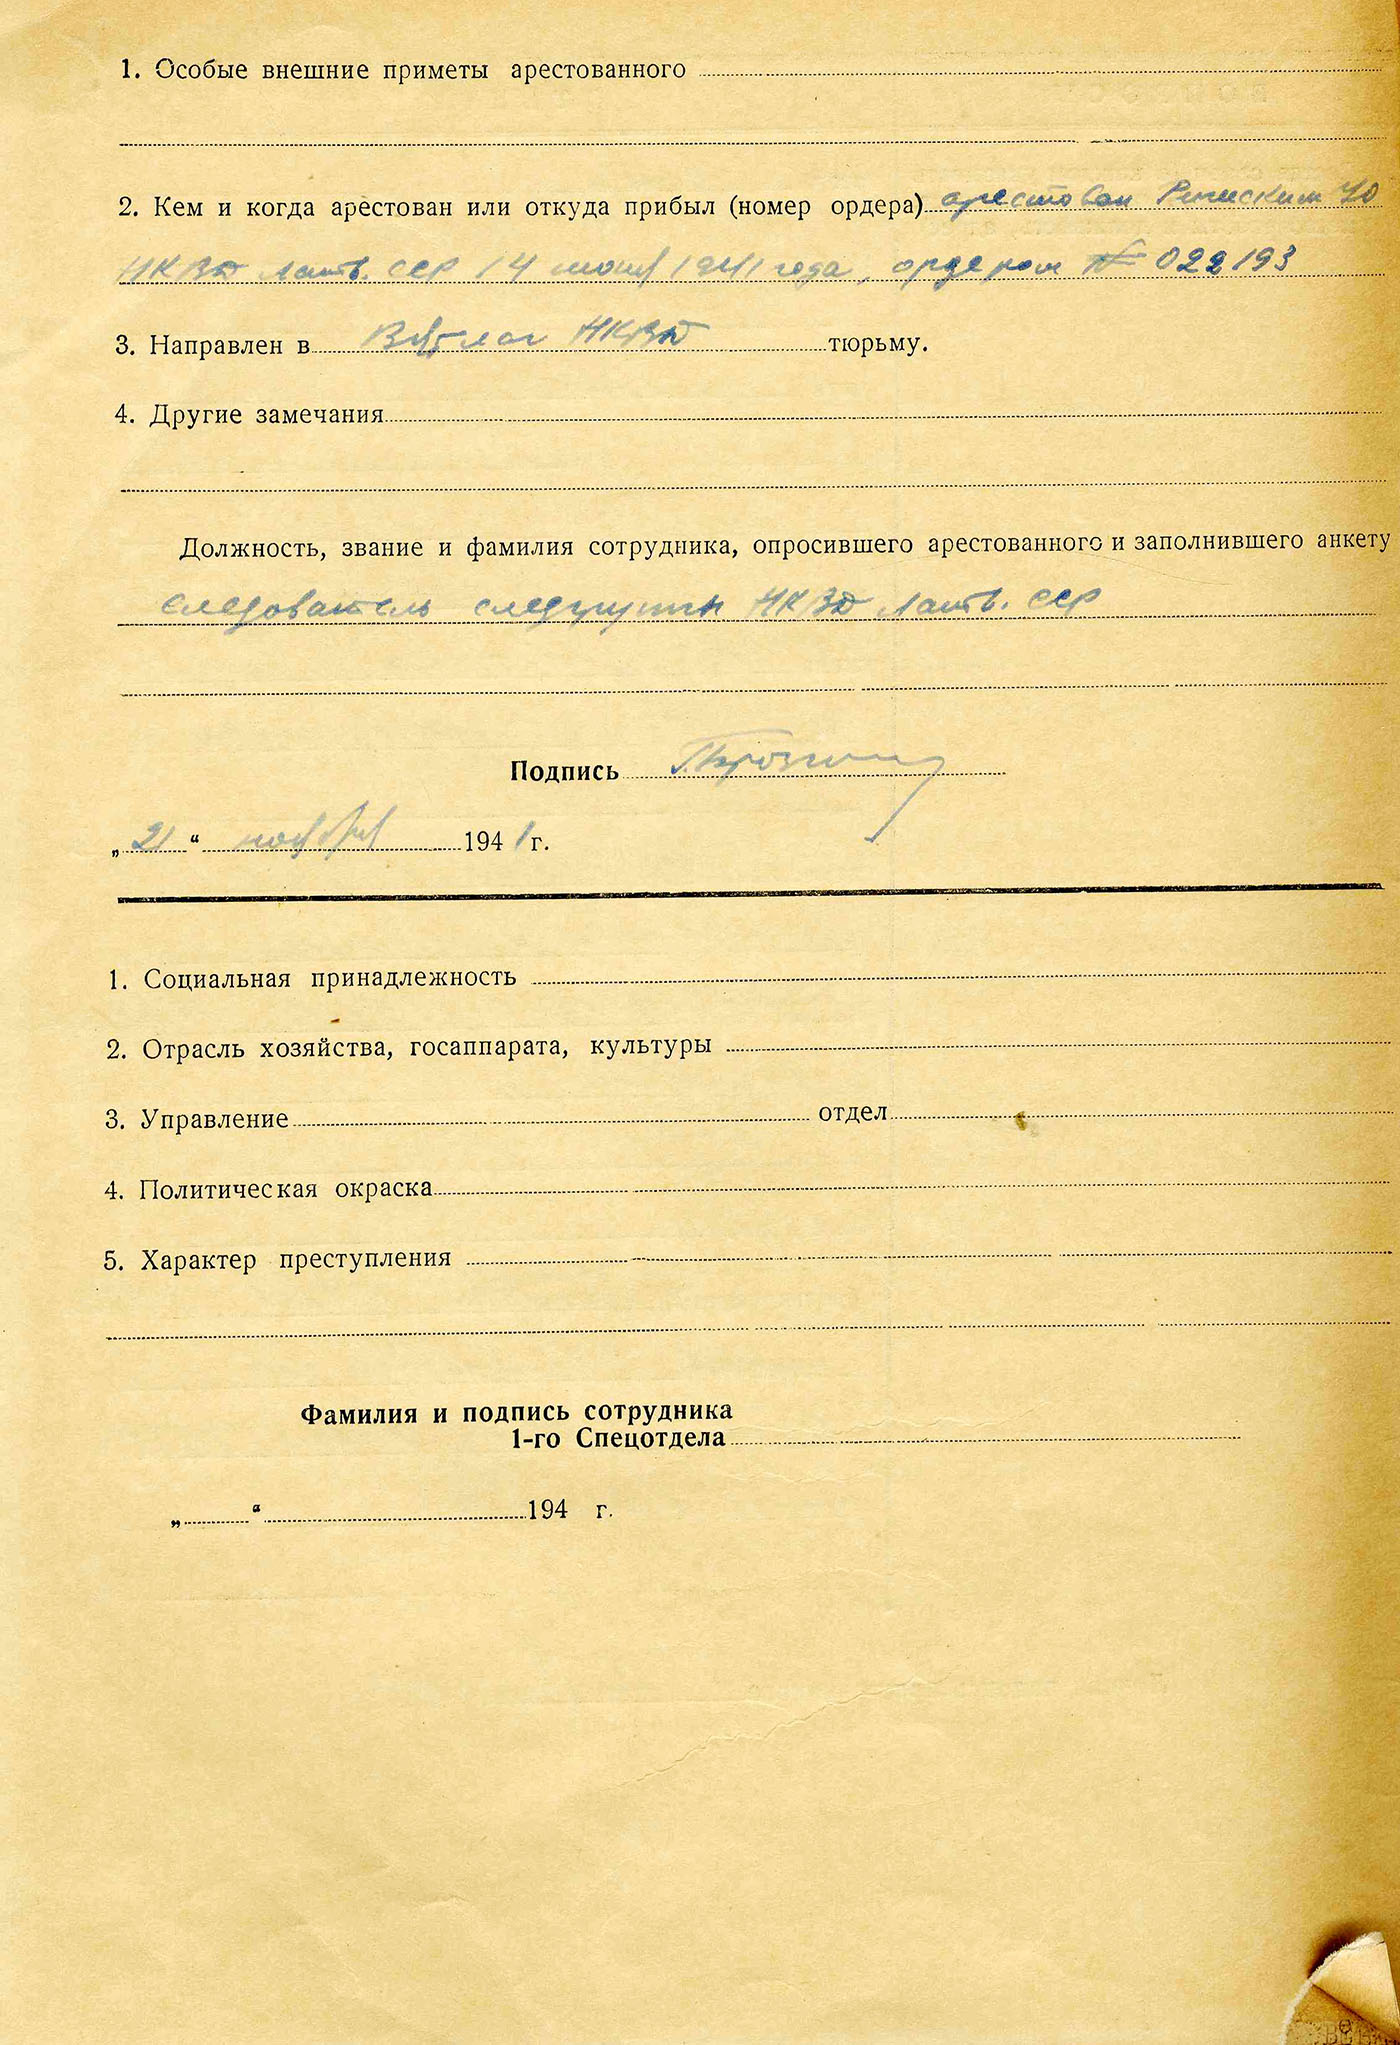 1. Особые внешние приметы арестованного
2. Кем и когда арестован или откуда прибыл (номер ордера) арестован Рижским УО
НКВД Латв. ССР 14 июня 1941 года, ордером № 022193
3. Направлен в Вятлаг НКВД тюрьму.
4. Другие замечания
Должность, звание и фамилия сотрудника, опросившего арестованного и заполнившего анкету
следователь следгруппы НКВД Латв. ССР
Подпись
„ 21 “ ноября 1941 г.
1. Социальная принадлежность
2. Отрасль хозяйства, госаппарата, культуры
3. Управление отдел
4. Политическая окраска
5. Характер преступления
Фамилия и подпись сотрудника
1-го Спецотдела
„ “ 194 г.